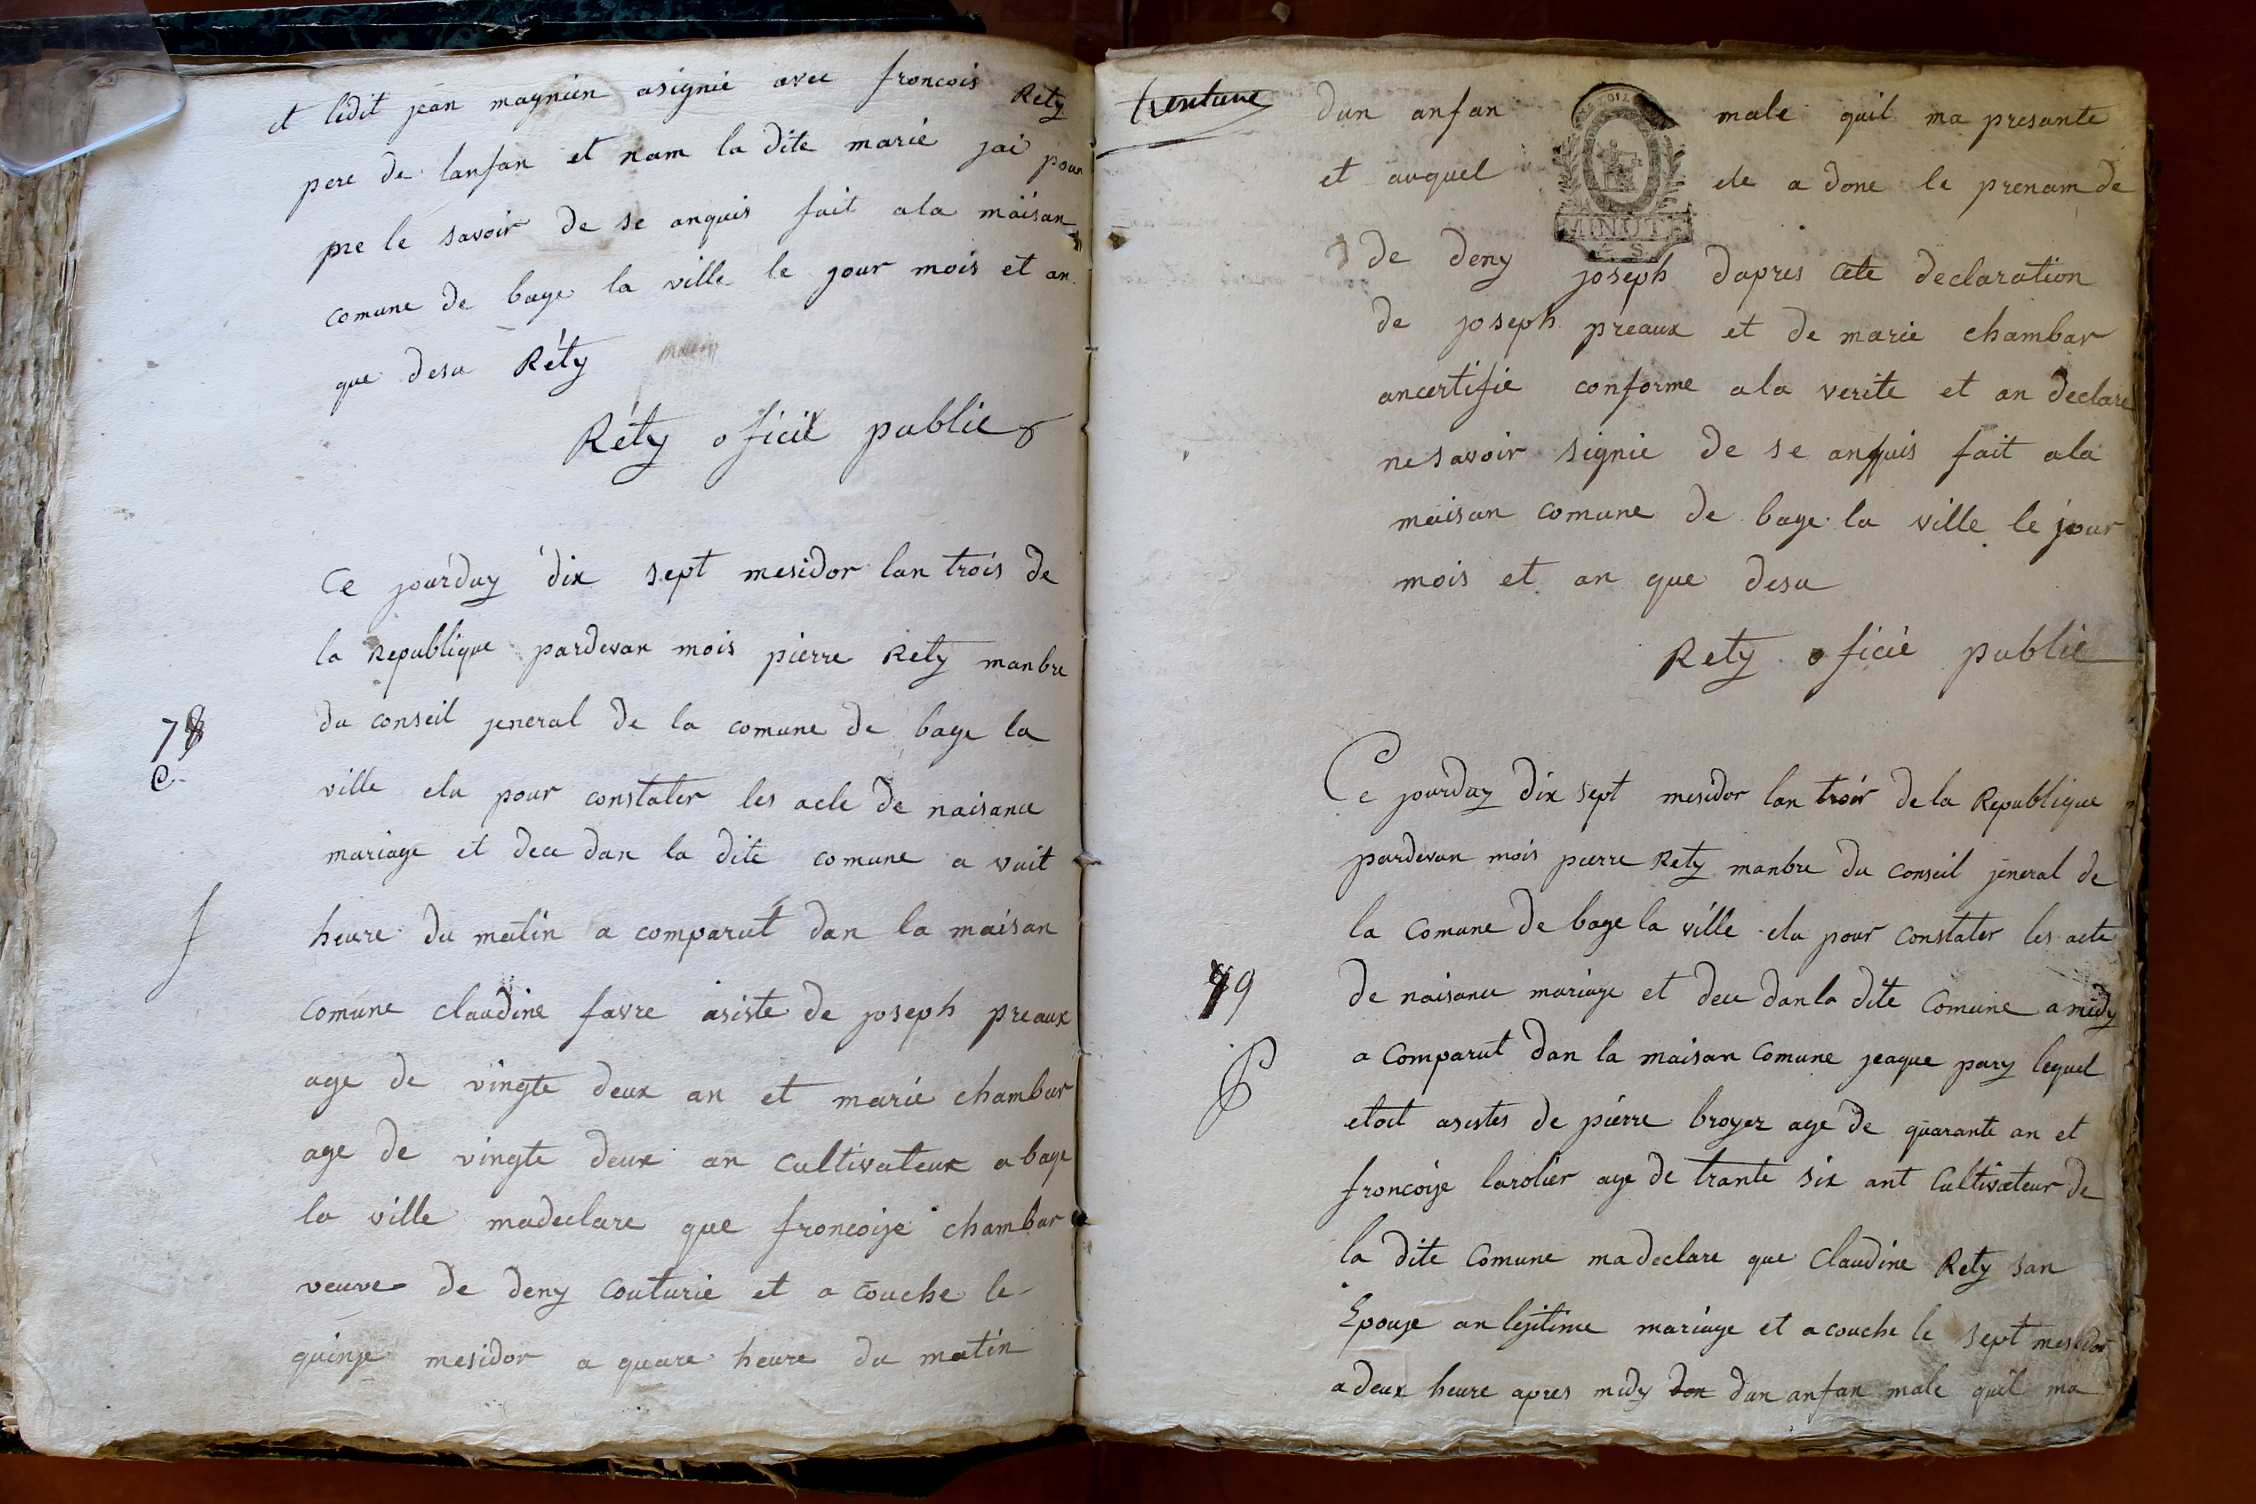 et ledit jean magnien asignie avec froncois Rety
pere de lanfan et nam la dite marie jai pour
pre le savoir de se anquis fait ala maisan
comune de bage la ville le jour mois et an
que desu Réty
Réty oficié public
Ce jourduy dix sept mesidor lan trois de
la Republique pardevan mois pierre Rety manbre
du conseil jeneral de la comune de bage la
78
ville elu pour constater les acte de naisance
mariage et dece dan la dite comune a vuit
heure du matin a comparut dan la maisan
comune claudine favre asiste de joseph preaux
age de vingte deux an et marie chambar
age de vingte deux an cultivateux a bage
la ville madeclare que froncoise chambar
veuve de deny couturie et a couche le
quinze mesidor a quare heure du matin
trenteune
dun anfan male quil ma presante
et auquel ele a done le prenam de
MINUTE
de deny joseph dapres cete declaration
de joseph preaux et de marie chambar
ancertifie conforme ala verite et an declare
ne savoir signie de se anquis fait ala
maisan comune de bage la ville le jour
mois et an que desu
Rety oficié public
Ce jourduy dix sept mesidor lan trois de la Republique
pardevan mois pierre Rety manbre du conseil jeneral de
la comune de bage la ville elu pour constater les acte
79
de naisance mariage et dece dan la dite comune a midy
a comparut dan la maisan comune jeaque pary lequel
etoit asistes de pierre broyer age de quarante an et
froncoise larolier age de trante six ant cultivateur de
la dite comune madeclare que claudine Rety san
Epouse an lejitime mariage et a couche le sept mesidor
a deux heure apres midy dun anfan male quil ma